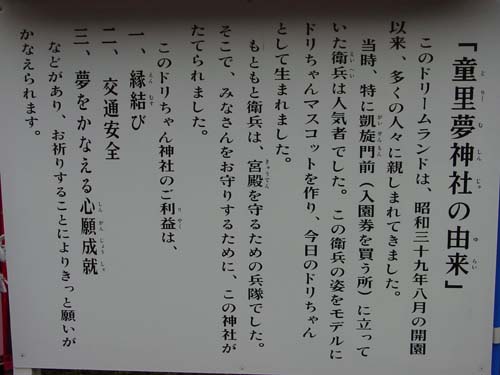 「童里夢神社の由来」
このドリームランドは、昭和三十九年八月の開園
以来、多くの人々に親しまれてきました。
当時、特に凱旋門前（入園券を買う所）に立って
いた衛兵は人気者でした。この衛兵の姿をモデルに
ドリちゃんマスコットを作り、今日のドリちゃん
として生まれました。
もともと衛兵は、宮殿を守るための兵隊でした。
そこで、みなさんをお守りするために、この神社が
たてられました。
このドリちゃん神社のご利益は、
一、縁結び
二、交通安全
三、夢をかなえる心願成就
などがあり、お祈りすることによりきっと願いが
かなえられます。